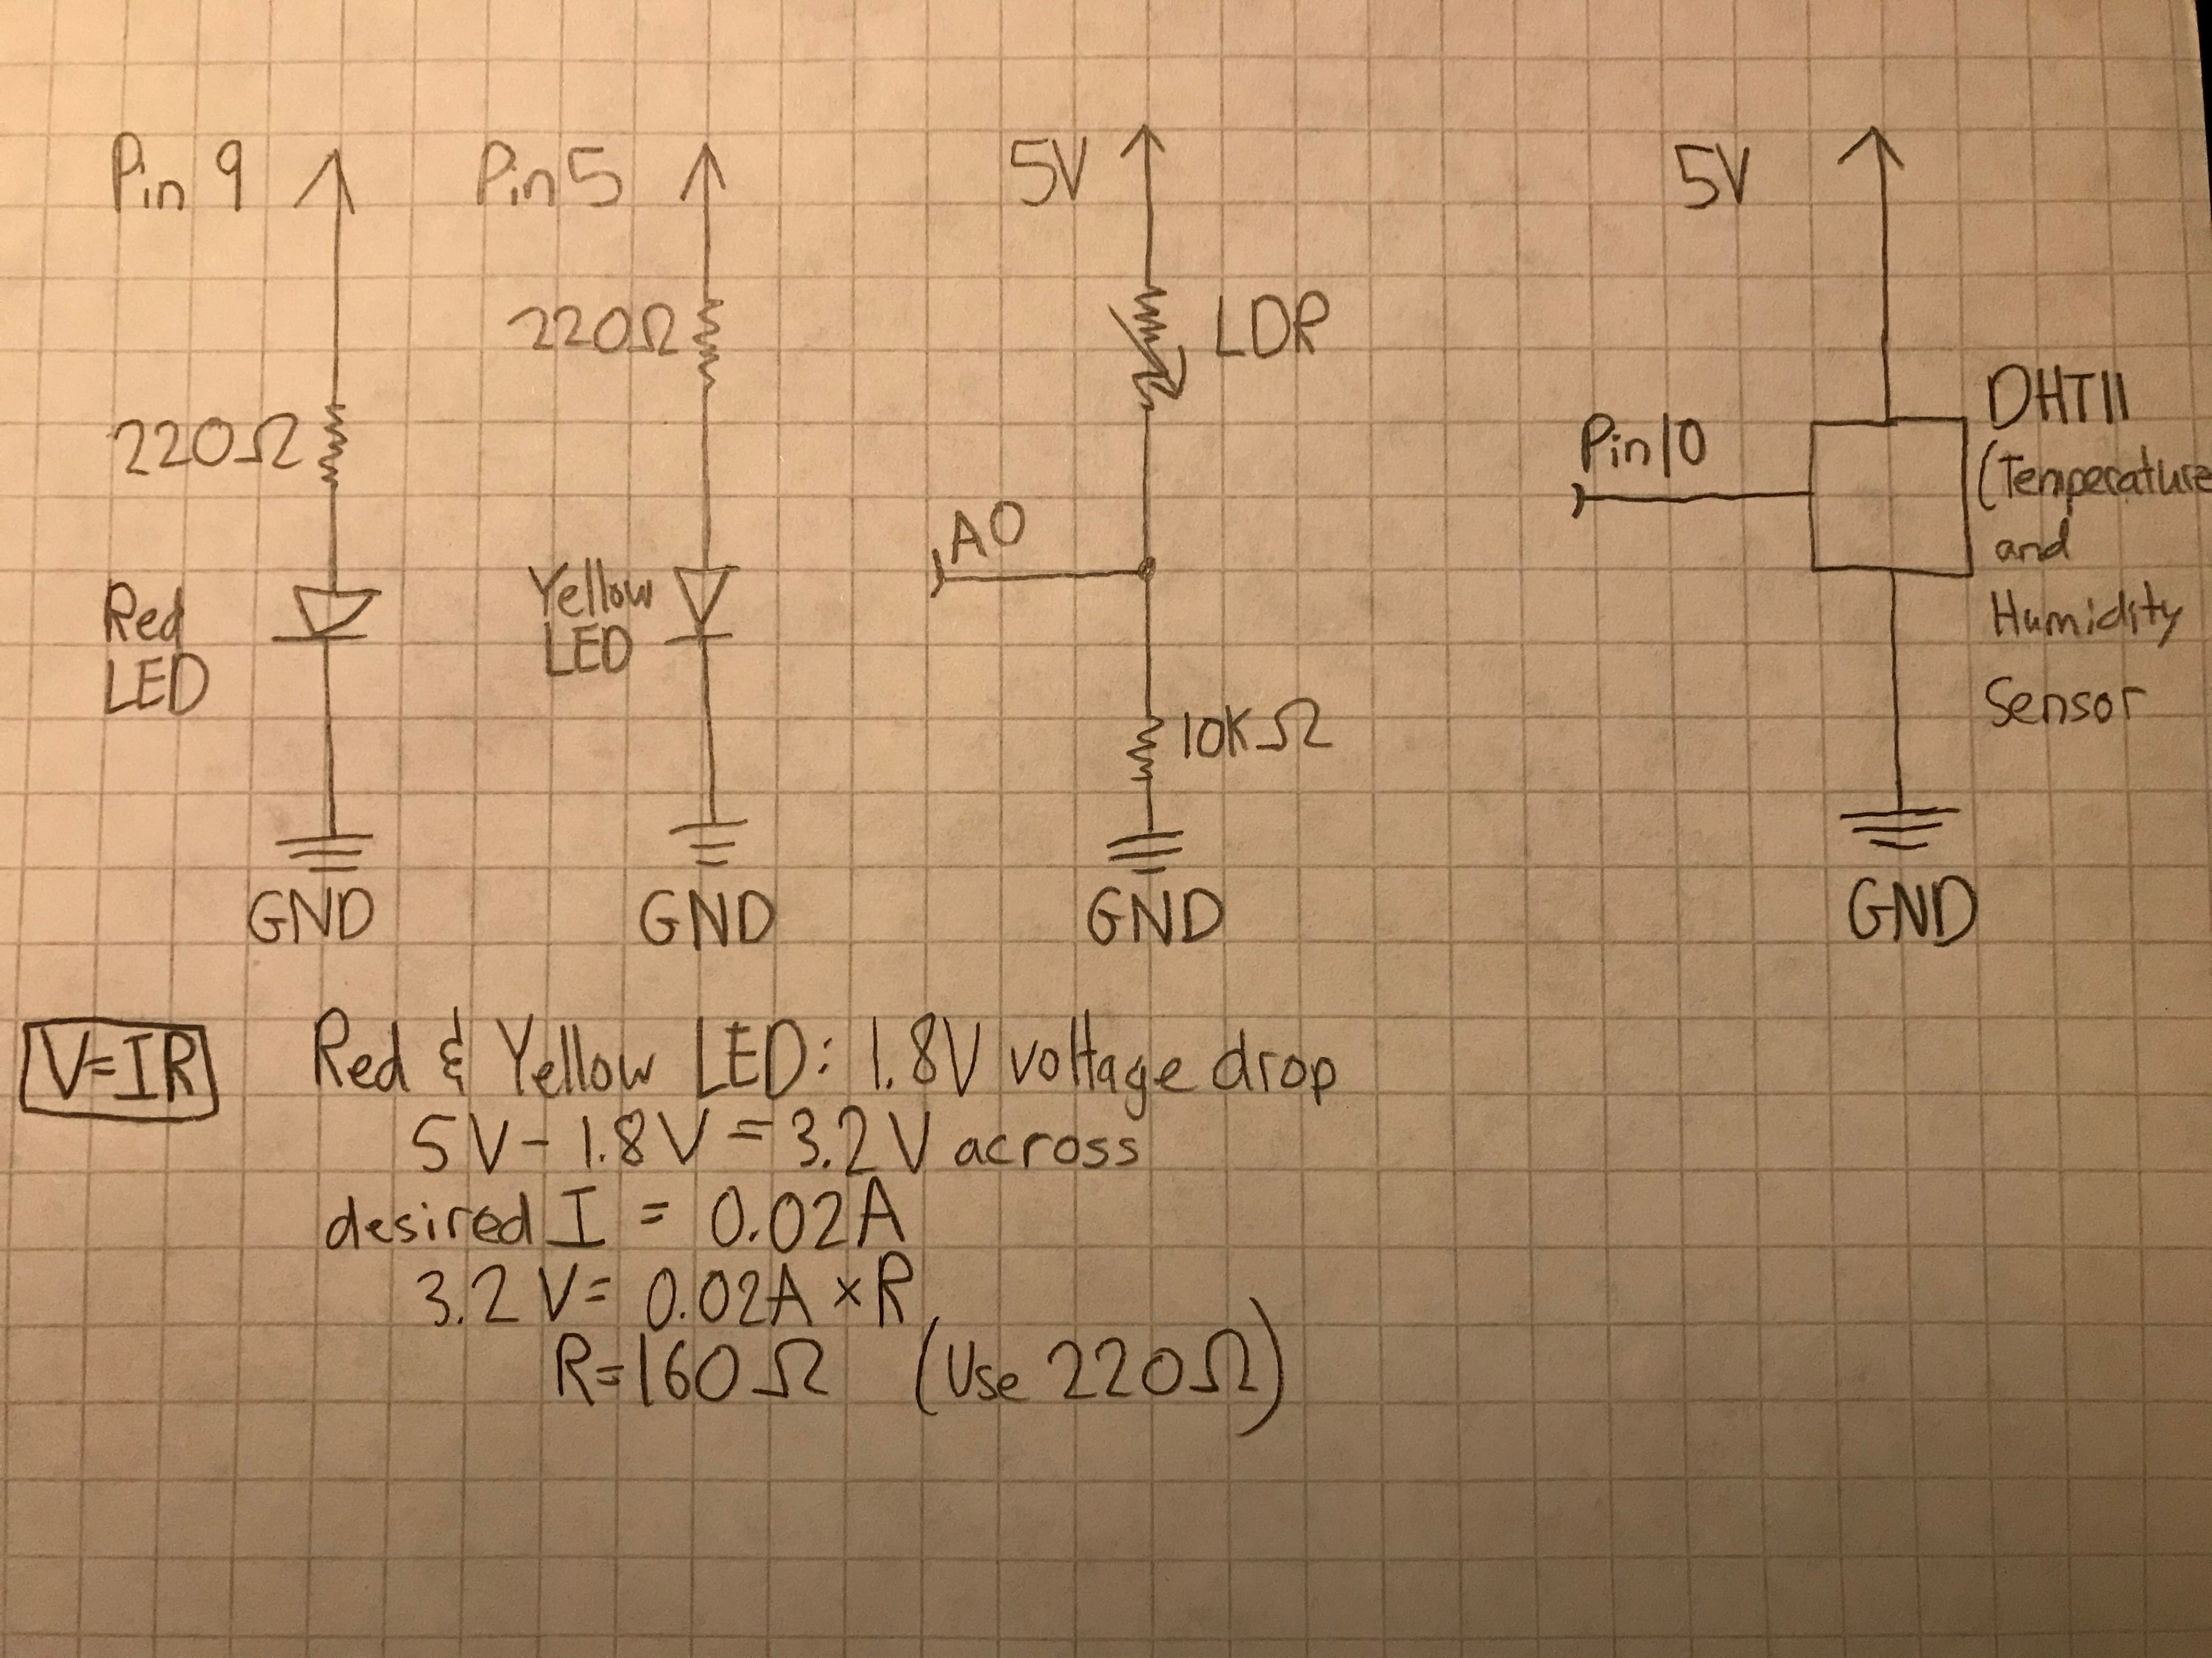 Pin 9
220Ω
Red
LED
GND
Pin 5
220Ω
Yellow
LED
GND
5V
LDR
A0
10KΩ
GND
5V
Pin 10
DHT11
(Temperature
and
Humidity
Sensor
GND
V=IR
Red & Yellow LED: 1.8V voltage drop
5V - 1.8V = 3.2V across
desired I = 0.02A
3.2V = 0.02A × R
R=160Ω (Use 220Ω)